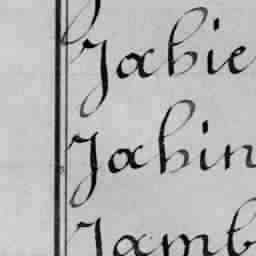 Jabie
Jabin
Jamb